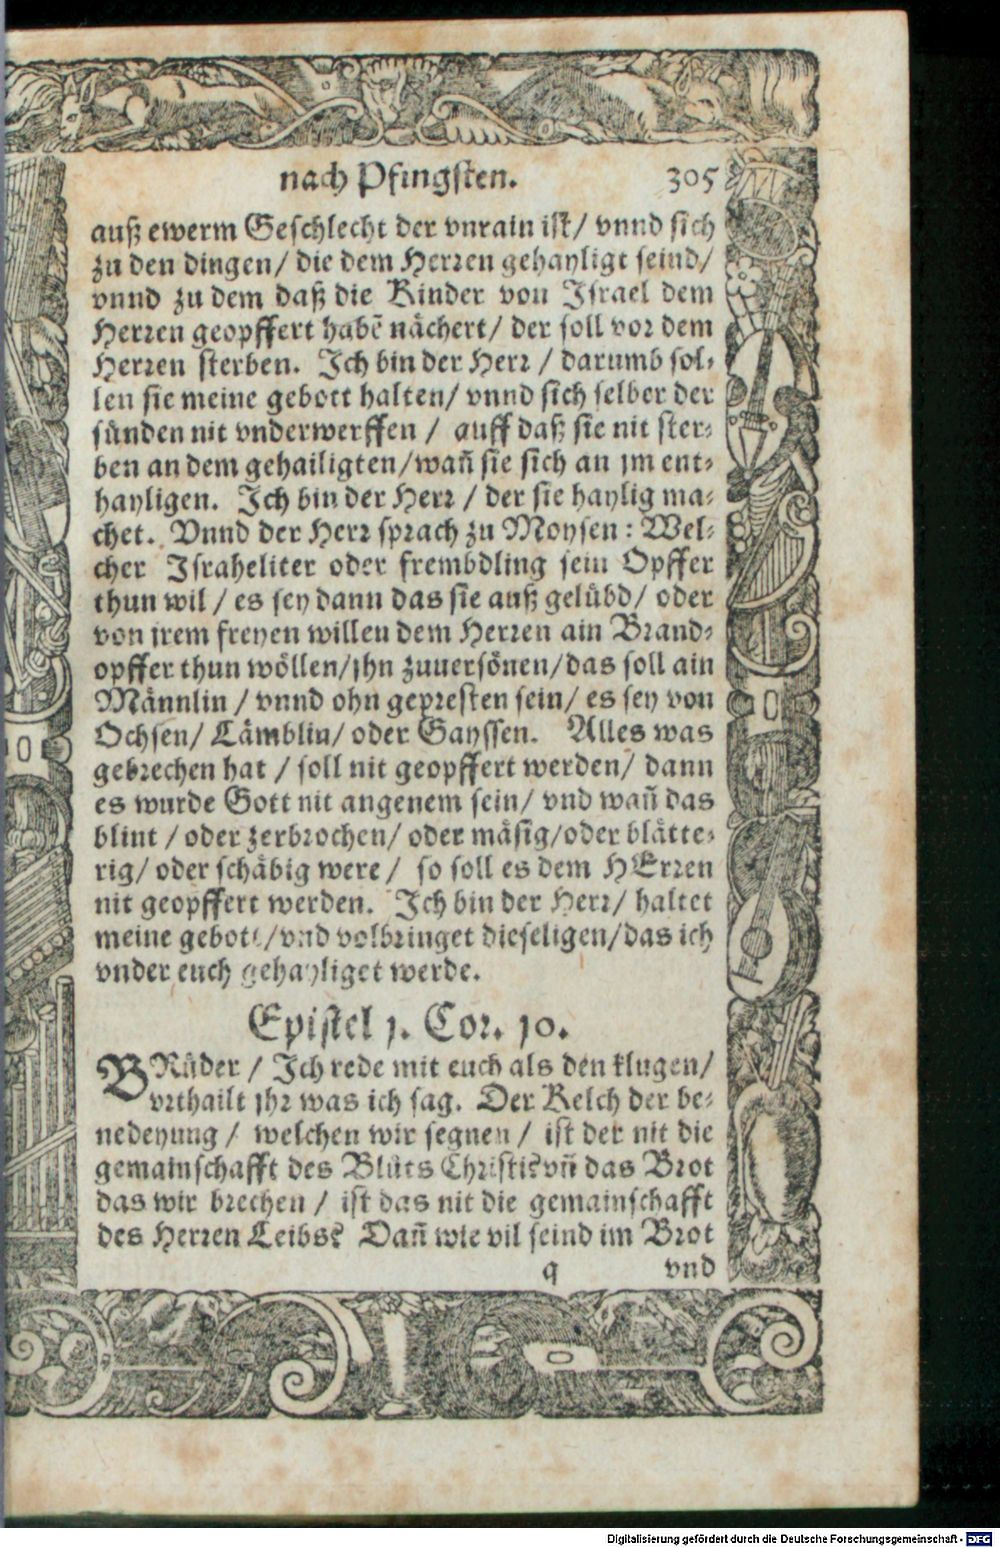 nach Pfingsten. 305
auß ewerm Geschlecht der vnrain ist/ vnnd sich
zu den dingen/ die dem Herren gehayligt seind/
vnnd zu dem daß die Kinder von Israel dem
Herren geopffert habē nächert/ der soll vor dem
Herren sterben. Ich bin der Herr / darumb sol⸗
len sie meine gebott halten/ vnnd sich selber der
sünden nit vnderwerffen / auff daß sie nit ster⸗
ben an dem gehailigten/wañ sie sich an jm ent⸗
hayligen. Ich bin der Herr / der sie haylig ma⸗
chet. Vnnd der Herr sprach zu Moysen: Wel⸗
cher Israheliter oder frembdling sein Opffer
thun wil / es sey dann das sie auß gelübd/ oder
von jrem freyen willen dem Herren ain Brand⸗
opffer thun wöllen/jhn zuuersönen/das soll ain
Männlin / vnnd ohn gepresten sein/ es sey von
Ochsen/ Lämblin/ oder Gayssen. Alles was
gebrechen hat / soll nit geopffert werden/ dann
es wurde Gott nit angenem sein/ vnd wañ das
blint / oder zerbrochen/ oder mäsig/oder blätte⸗
rig/ oder schäbig were / so soll es dem HErren
nit geopffert werden. Ich bin der Herr/ haltet
meine gebott/vnd volbringet dieseligen/das ich
vnder euch gehayliget werde.
Epistel j. Cor. jo.
BRüder / Ich rede mit euch als den klugen/
vrthailt jhr was ich sag. Der Kelch der be⸗
nedeyung / welchen wir segnen / ist der nit die
gemainschafft des Blůts Christi? vñ das Brot
das wir brechen / ist das nit die gemainschafft
des Herren Leibs? Dañ wie vil seind im Brot
q vnd
Digitalisierung gefördert durch die Deutsche Forschungsgemeinschaft - DFG